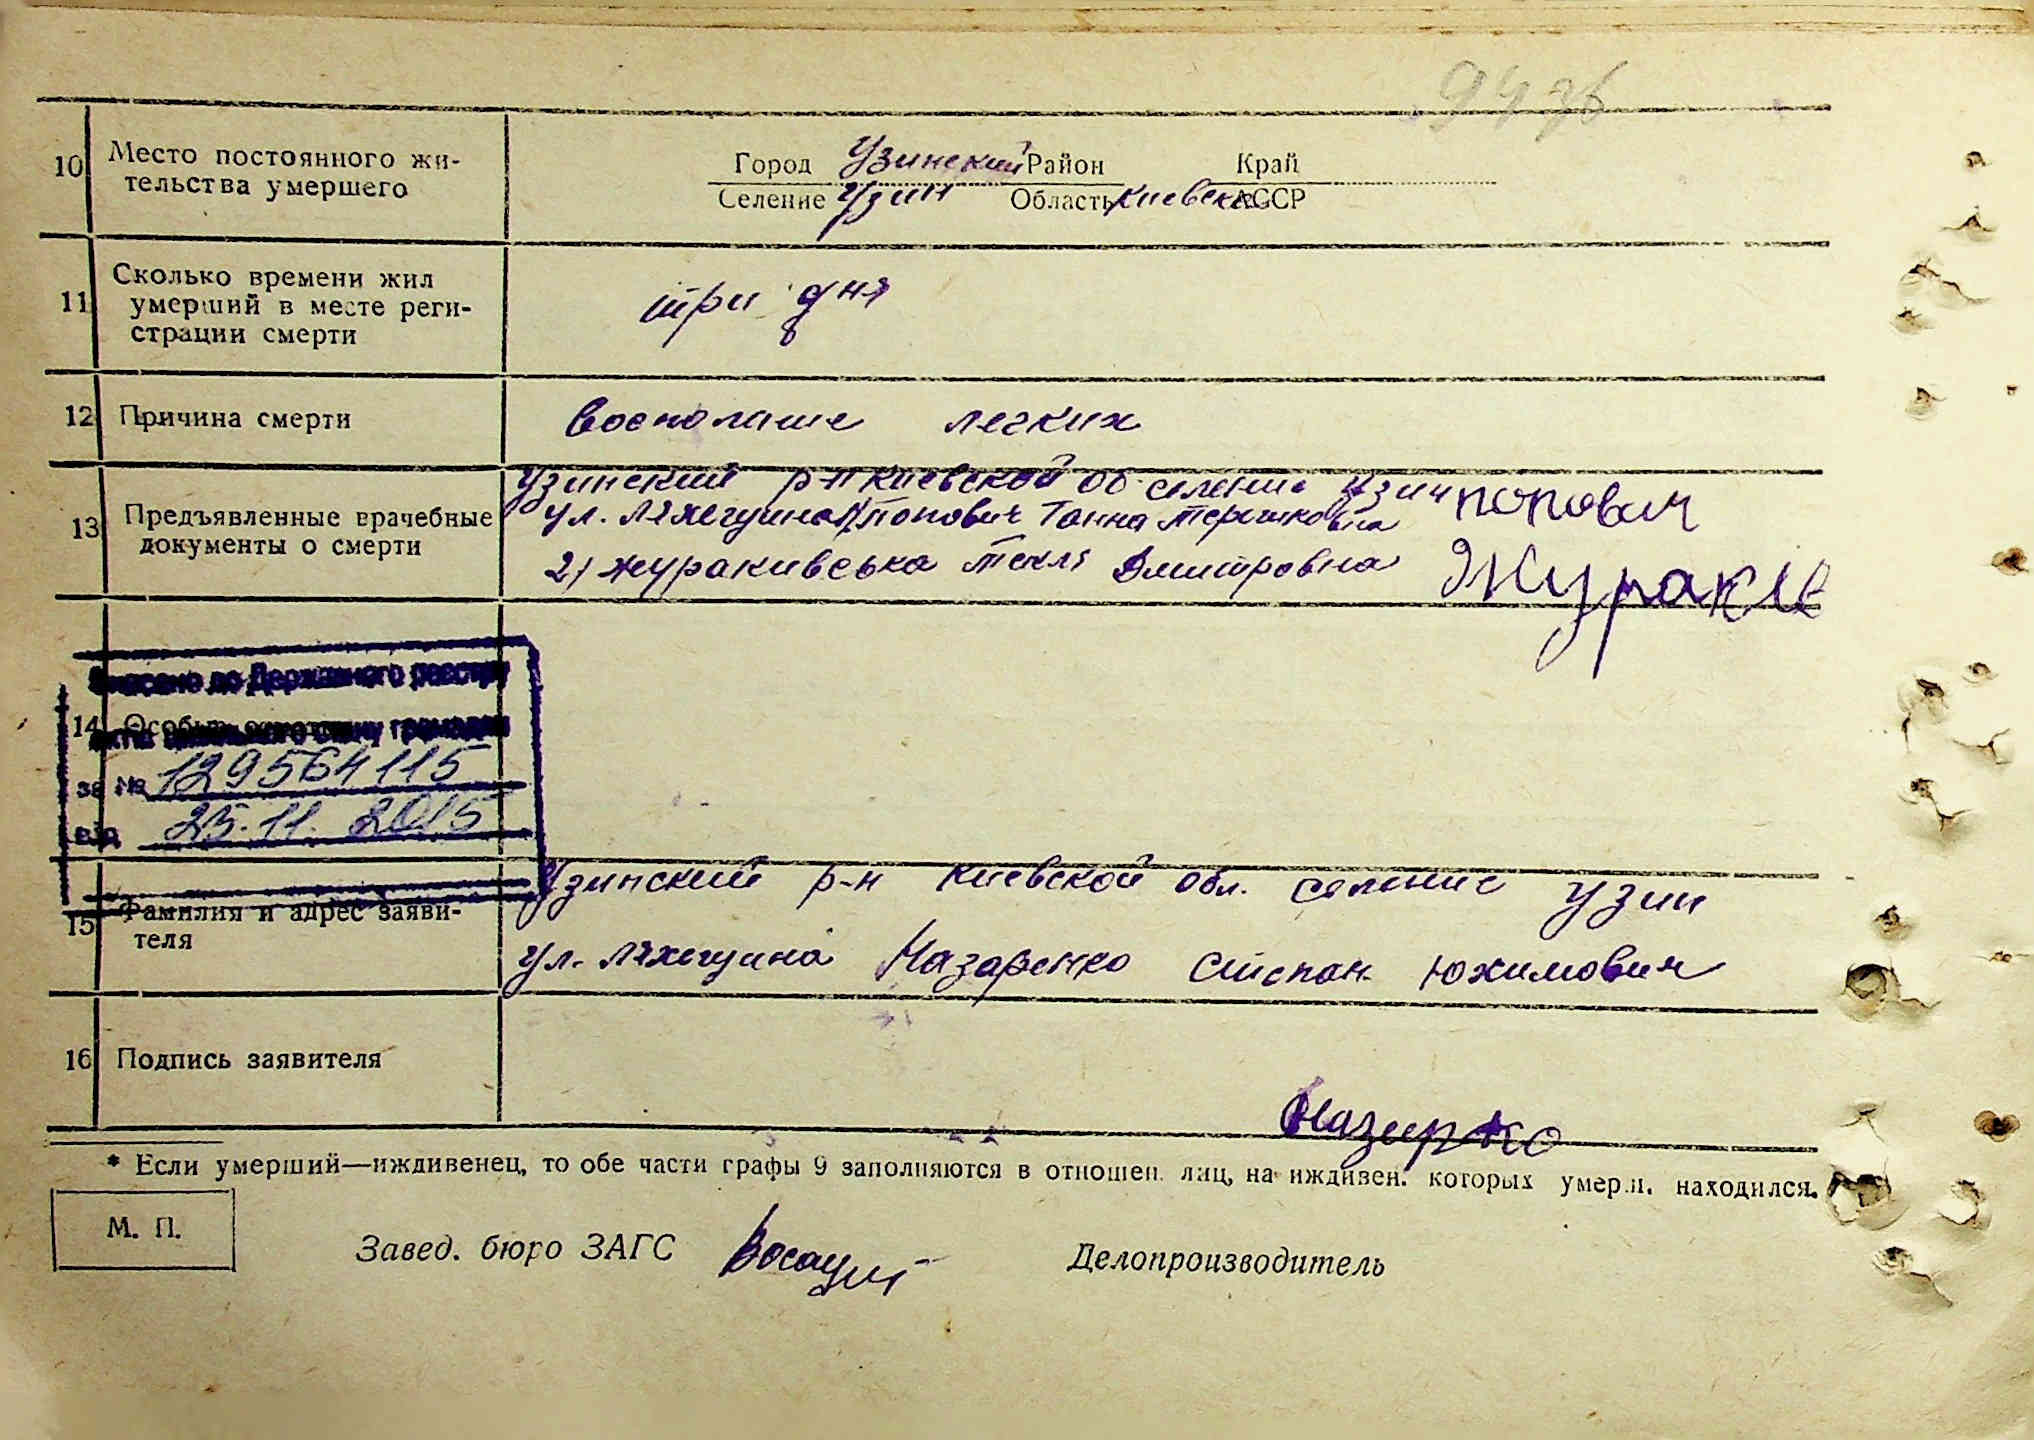 10 Место постоянного жи-
тельства умершего
Город Узинский Район Край
Селение Узин Область Киевска АССР
11 Сколько времени жил
умерший в месте реги-
страции смерти
три дня
12 Причина смерти
Восполение легких
13 Предъявленные врачебные
документы о смерти
Узинский р-н Киевской об селение Узин попович
ул. Попович Ганна Терешковна
2) Журакивська Текля Дмитровна Жураків
Внесено до Державного реєстру
14 Особые
актів цивільного стану громадян
за № 129564115
від 25.11.2015
15 Фамилия и адрес заяви-
теля
Узинский р-н Киевской обл. селение Узин
ул. Назаренко Степан Юхимович
16 Подпись заявителя
* Если умерший—иждивенец, то обе части графы 9 заполняются в отношен. лиц, на иждивен. которых умерш. находился.
М. П.
Завед. бюро ЗАГС
Делопроизводитель